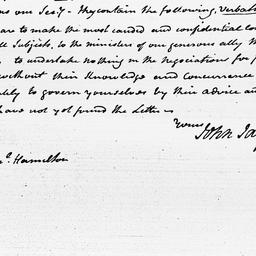 our Sec:y - They contain the following, Verbat
are to make the most candid and confidential co
ll Subjects, to the ministers of our generous ally th
to undertake nothing in the negociations for p
without their Knowledge and Concurrence
ly to govern yourselves by their advice and
have not yet found the Letter -
Yours
John Ja
Hamilton